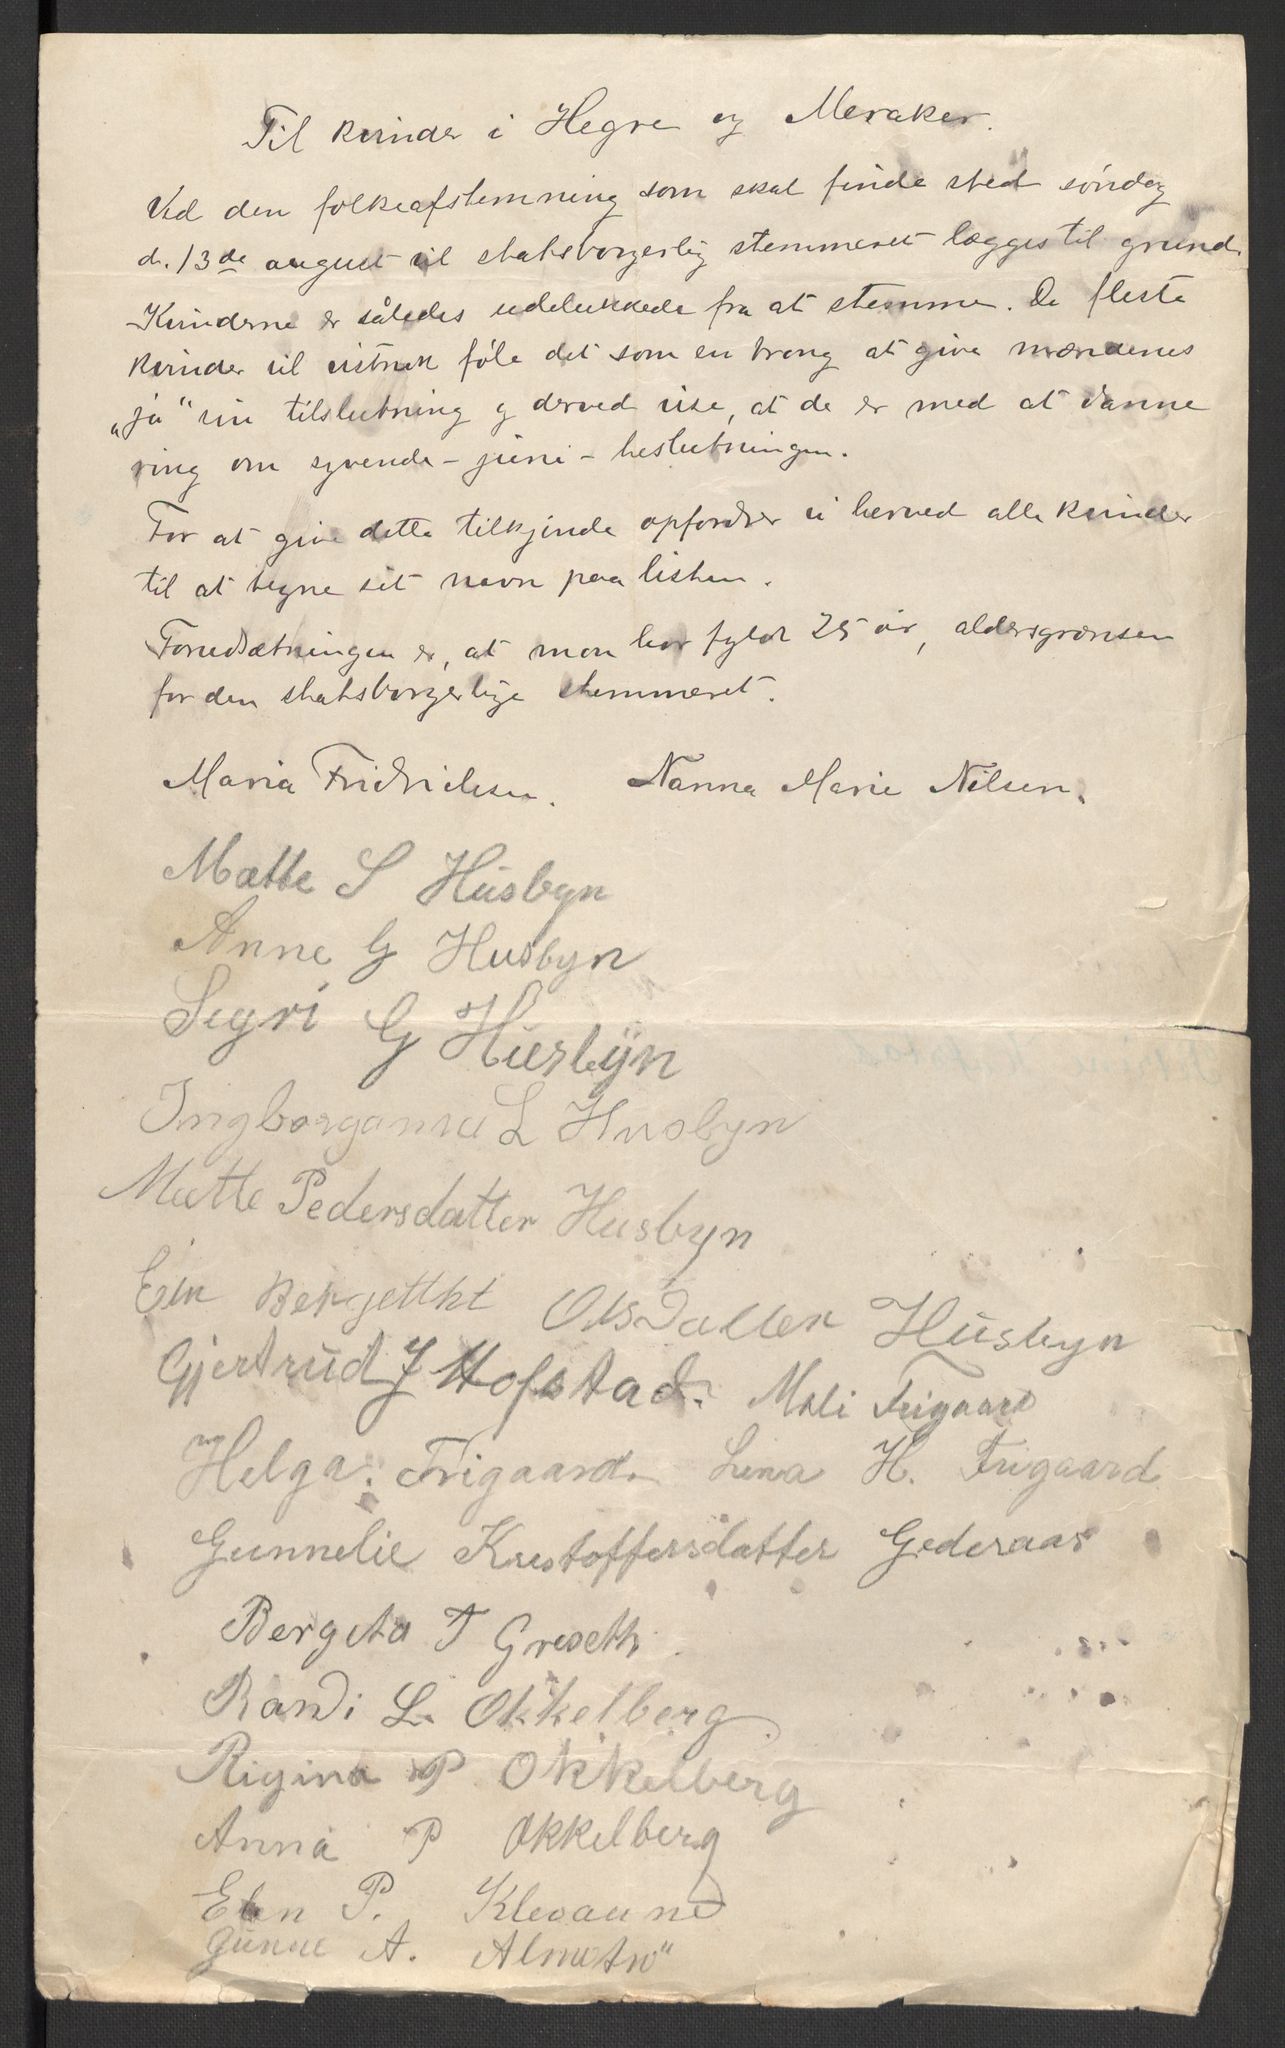 Til kvinder i Hegre og Meraker.
Ved den folkeafstemning som skal finde sted söndag
d. 13de august vil statsborgerlig stemmeret lægges til grund.
Kvinderne er således udelukkede fra at stemme. De fleste
kvinder vil vistnok föle det som en trang at give mændenes
„ja" sin tilslutning og derved vise, at de er med at danne
ring om syvende-juni-beslutningen.
For at give dette tilkjende opfordrer vi herved alle kvinder
til at tegne sit navn paa listen.
Forudsætningen er, at man har fyldt 25 år, aldersgrænsen
for den statsborgerlige stemmeret.
Maria Fridrichsen. Nanna Marie Nilsen.
Mætte S Husbyn
Anne G Husbyn
Segri G Husbyn
Ingborganna L Husbyn
Mætte Pedersdatter Husbyn
Elen Bergitthe Olsdatter Husbyn
Gjertrud J Hofstad. Mali Frigaard
Helga. Frigaard. Lina H. Frigaard
Gunnelie Krestoffersdatter Gederaas
Bergeta T Greseth
Randi L. Okkelberg
Rigina P Okkelberg
Anna P Okkelberg
Elen P.
Gunne A.